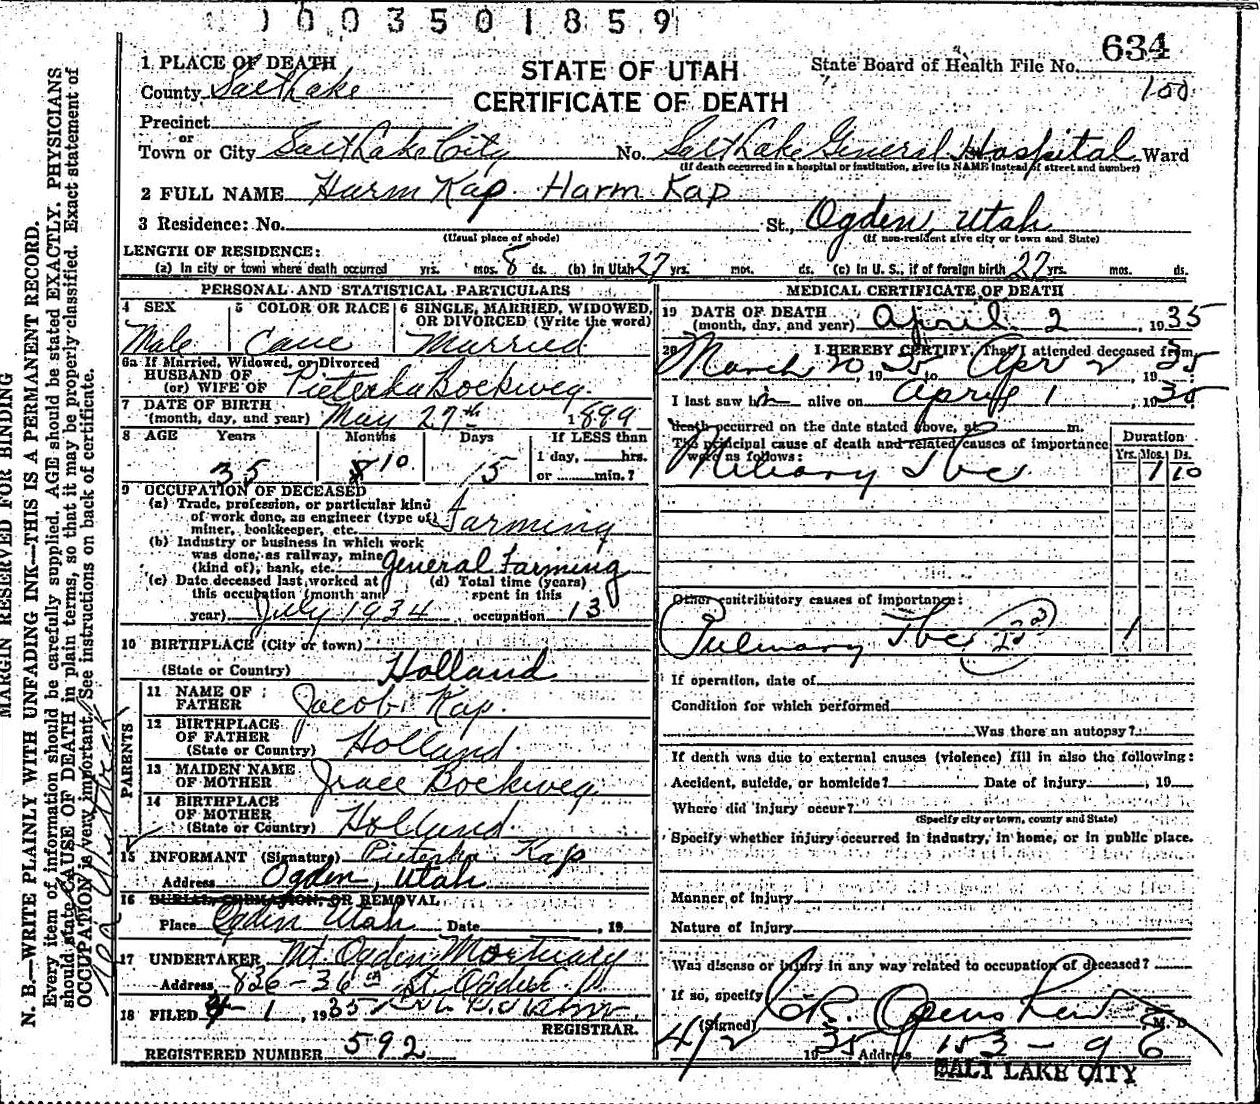 1003501859
634
State Board of Health File No.
100
STATE OF UTAH
CERTIFICATE OF DEATH
1 PLACE OF DEATH
County Salt Lake
Precinct
or
Town or City Salt Lake City No. Salt Lake General Hospital Ward
(If death occurred in a hospital or institution, give its NAME instead of street and number)
2 FULL NAME Harm Kap Harm Kap
3 Residence: No. St., Ogden, Utah
(Usual place of abode) (If non-resident give city or town and State)
LENGTH OF RESIDENCE:
(a) In city or town where death occurred yrs. mos. 8 ds. (b) In Utah 27 yrs. mos. ds. (c) In U. S., if of foreign birth 27 yrs. mos. ds.
PERSONAL AND STATISTICAL PARTICULARS
4 SEX 5 COLOR OR RACE 6 SINGLE, MARRIED, WIDOWED, OR DIVORCED (Write the word)
Male Cauc Married
6a If Married, Widowed, or Divorced
HUSBAND OF
(or) WIFE OF Pieterka Bockweg
7 DATE OF BIRTH
(month, day, and year) May 27th 1899
8 AGE Years Months Days If LESS than
1 day, hrs.
35 10 5 or min.?
9 OCCUPATION OF DECEASED
(a) Trade, profession, or particular kind
of work done, as engineer (type of)
miner, bookkeeper, etc. Farming
(b) Industry or business in which work
was done, as railway, mine
(kind of), bank, etc. General Farming
(c) Date deceased last worked at (d) Total time (years)
this occupation (month and spent in this
year) July 1934 occupation 13
10 BIRTHPLACE (City or town)
(State or Country) Holland
PARENTS
11 NAME OF
FATHER Jacob Kap.
12 BIRTHPLACE
OF FATHER
(State or Country) Holland
13 MAIDEN NAME
OF MOTHER Grace Bockweg
14 BIRTHPLACE
OF MOTHER
(State or Country) Holland
15 INFORMANT (Signature) Pieterka Kap
Address Ogden, Utah
16 BURIAL, CREMATION, OR REMOVAL
Place Ogden Utah Date , 19
17 UNDERTAKER Mt. Ogden Mortuary
Address 826-36th St. Ogden
18 FILED 4-1, 1935
REGISTRAR.
REGISTERED NUMBER 592
MEDICAL CERTIFICATE OF DEATH
19 DATE OF DEATH
(month, day, and year) April 2, 1935
20 I HEREBY CERTIFY, That I attended deceased from
March 20, 1935 to Apr 2, 1935
I last saw him alive on April 1, 1935
death occurred on the date stated above, at m.
The principal cause of death and related causes of importance
were as follows:
Duration
Yrs. Mos. Ds.
Miliary Tbc 1 10
Other contributory causes of importance:
Pulmonary Tbc 1
If operation, date of
Condition for which performed
Was there an autopsy?
If death was due to external causes (violence) fill in also the following:
Accident, suicide, or homicide? Date of injury , 19
Where did injury occur?
(Specify city or town, county and State)
Specify whether injury occurred in industry, in home, or in public place.
Manner of injury
Nature of injury
Was disease or injury in any way related to occupation of deceased?
If so, specify
(Signed) M. D.
4/2 1935 Address 153-9 E
SALT LAKE CITY
MARGIN RESERVED FOR BINDING
N. B.—WRITE PLAINLY WITH UNFADING INK—THIS IS A PERMANENT RECORD.
Every item of information should be carefully supplied. AGE should be stated EXACTLY. PHYSICIANS
should state CAUSE OF DEATH in plain terms, so that it may be properly classified. Exact statement of
OCCUPATION is very important. See instructions on back of certificate.